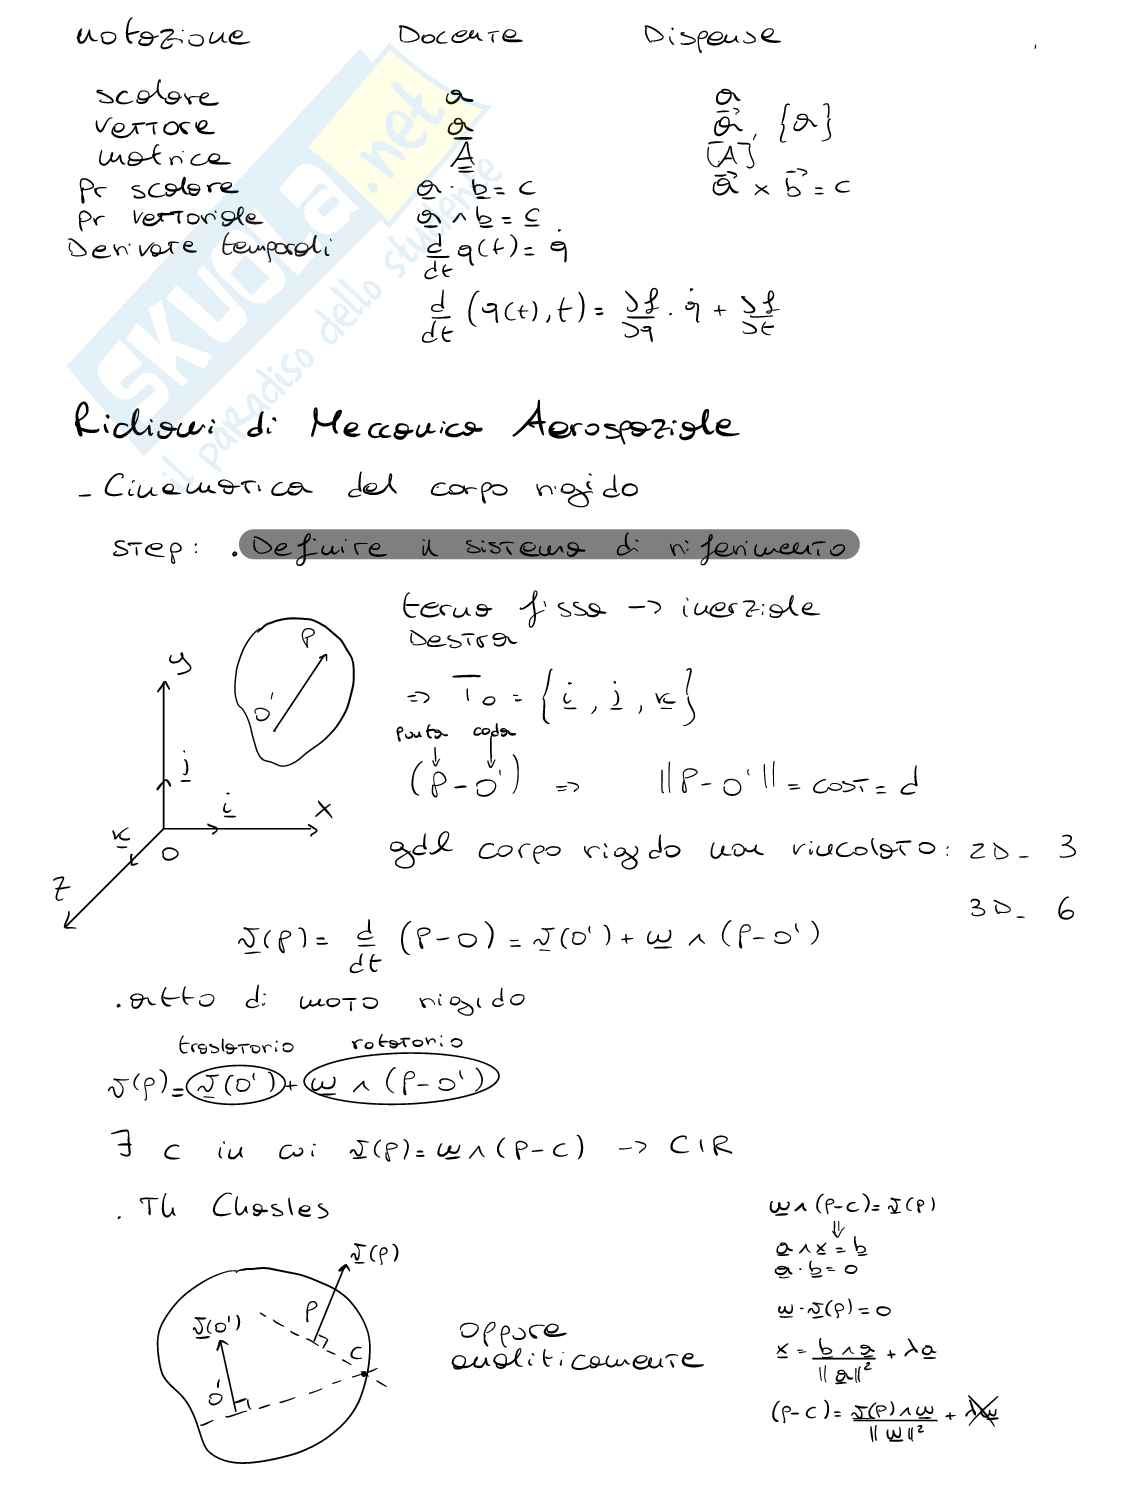 notazione Docente Dispense
scalare a a
vettore a̲ a⃗, {a}
matrice A̲̲ [A]
Pr scalare a̲ · b̲ = c a⃗ × b⃗ = c
Pr vettoriale a̲ ∧ b̲ = c̲
Derivate temporali d/dt q(t) = q̇
d/dt (q(t), t) = ∂f/∂q · q̇ + ∂f/∂t
SKUOLA.net
il paradiso dello studente
Richiami di Meccanica Aerospaziale
- Cinematica del corpo rigido
step: . Definire il sistema di riferimento
terna fissa -> inerziale
Destra
=> T₀ = { i̲, j̲, k̲ }
punta coda
(P - O') => ||P - O'|| = cost = d
y P O' j̲ i̲ x k̲ O z
gdl corpo rigido non vincolato: 2D - 3
3D - 6
v̲(P) = d/dt (P - O) = v̲(O') + ω̲ ∧ (P - O')
. atto di moto rigido
traslatorio rotatorio
v̲(P) = v̲(O') + ω̲ ∧ (P - O')
∃ C in cui v̲(P) = ω̲ ∧ (P - C) -> CIR
. Th Chasles
v̲(P) P v̲(O') C O'
oppure
analiticamente
ω̲ ∧ (P - C) = v̲(P)
⇓
a̲ ∧ x̲ = b̲
a̲ · b̲ = 0
ω̲ · v̲(P) = 0
x̲ = b̲ ∧ a̲ / ||a̲||² + λa̲
(P - C) = v̲(P) ∧ ω̲ / ||ω̲||² + λω̲